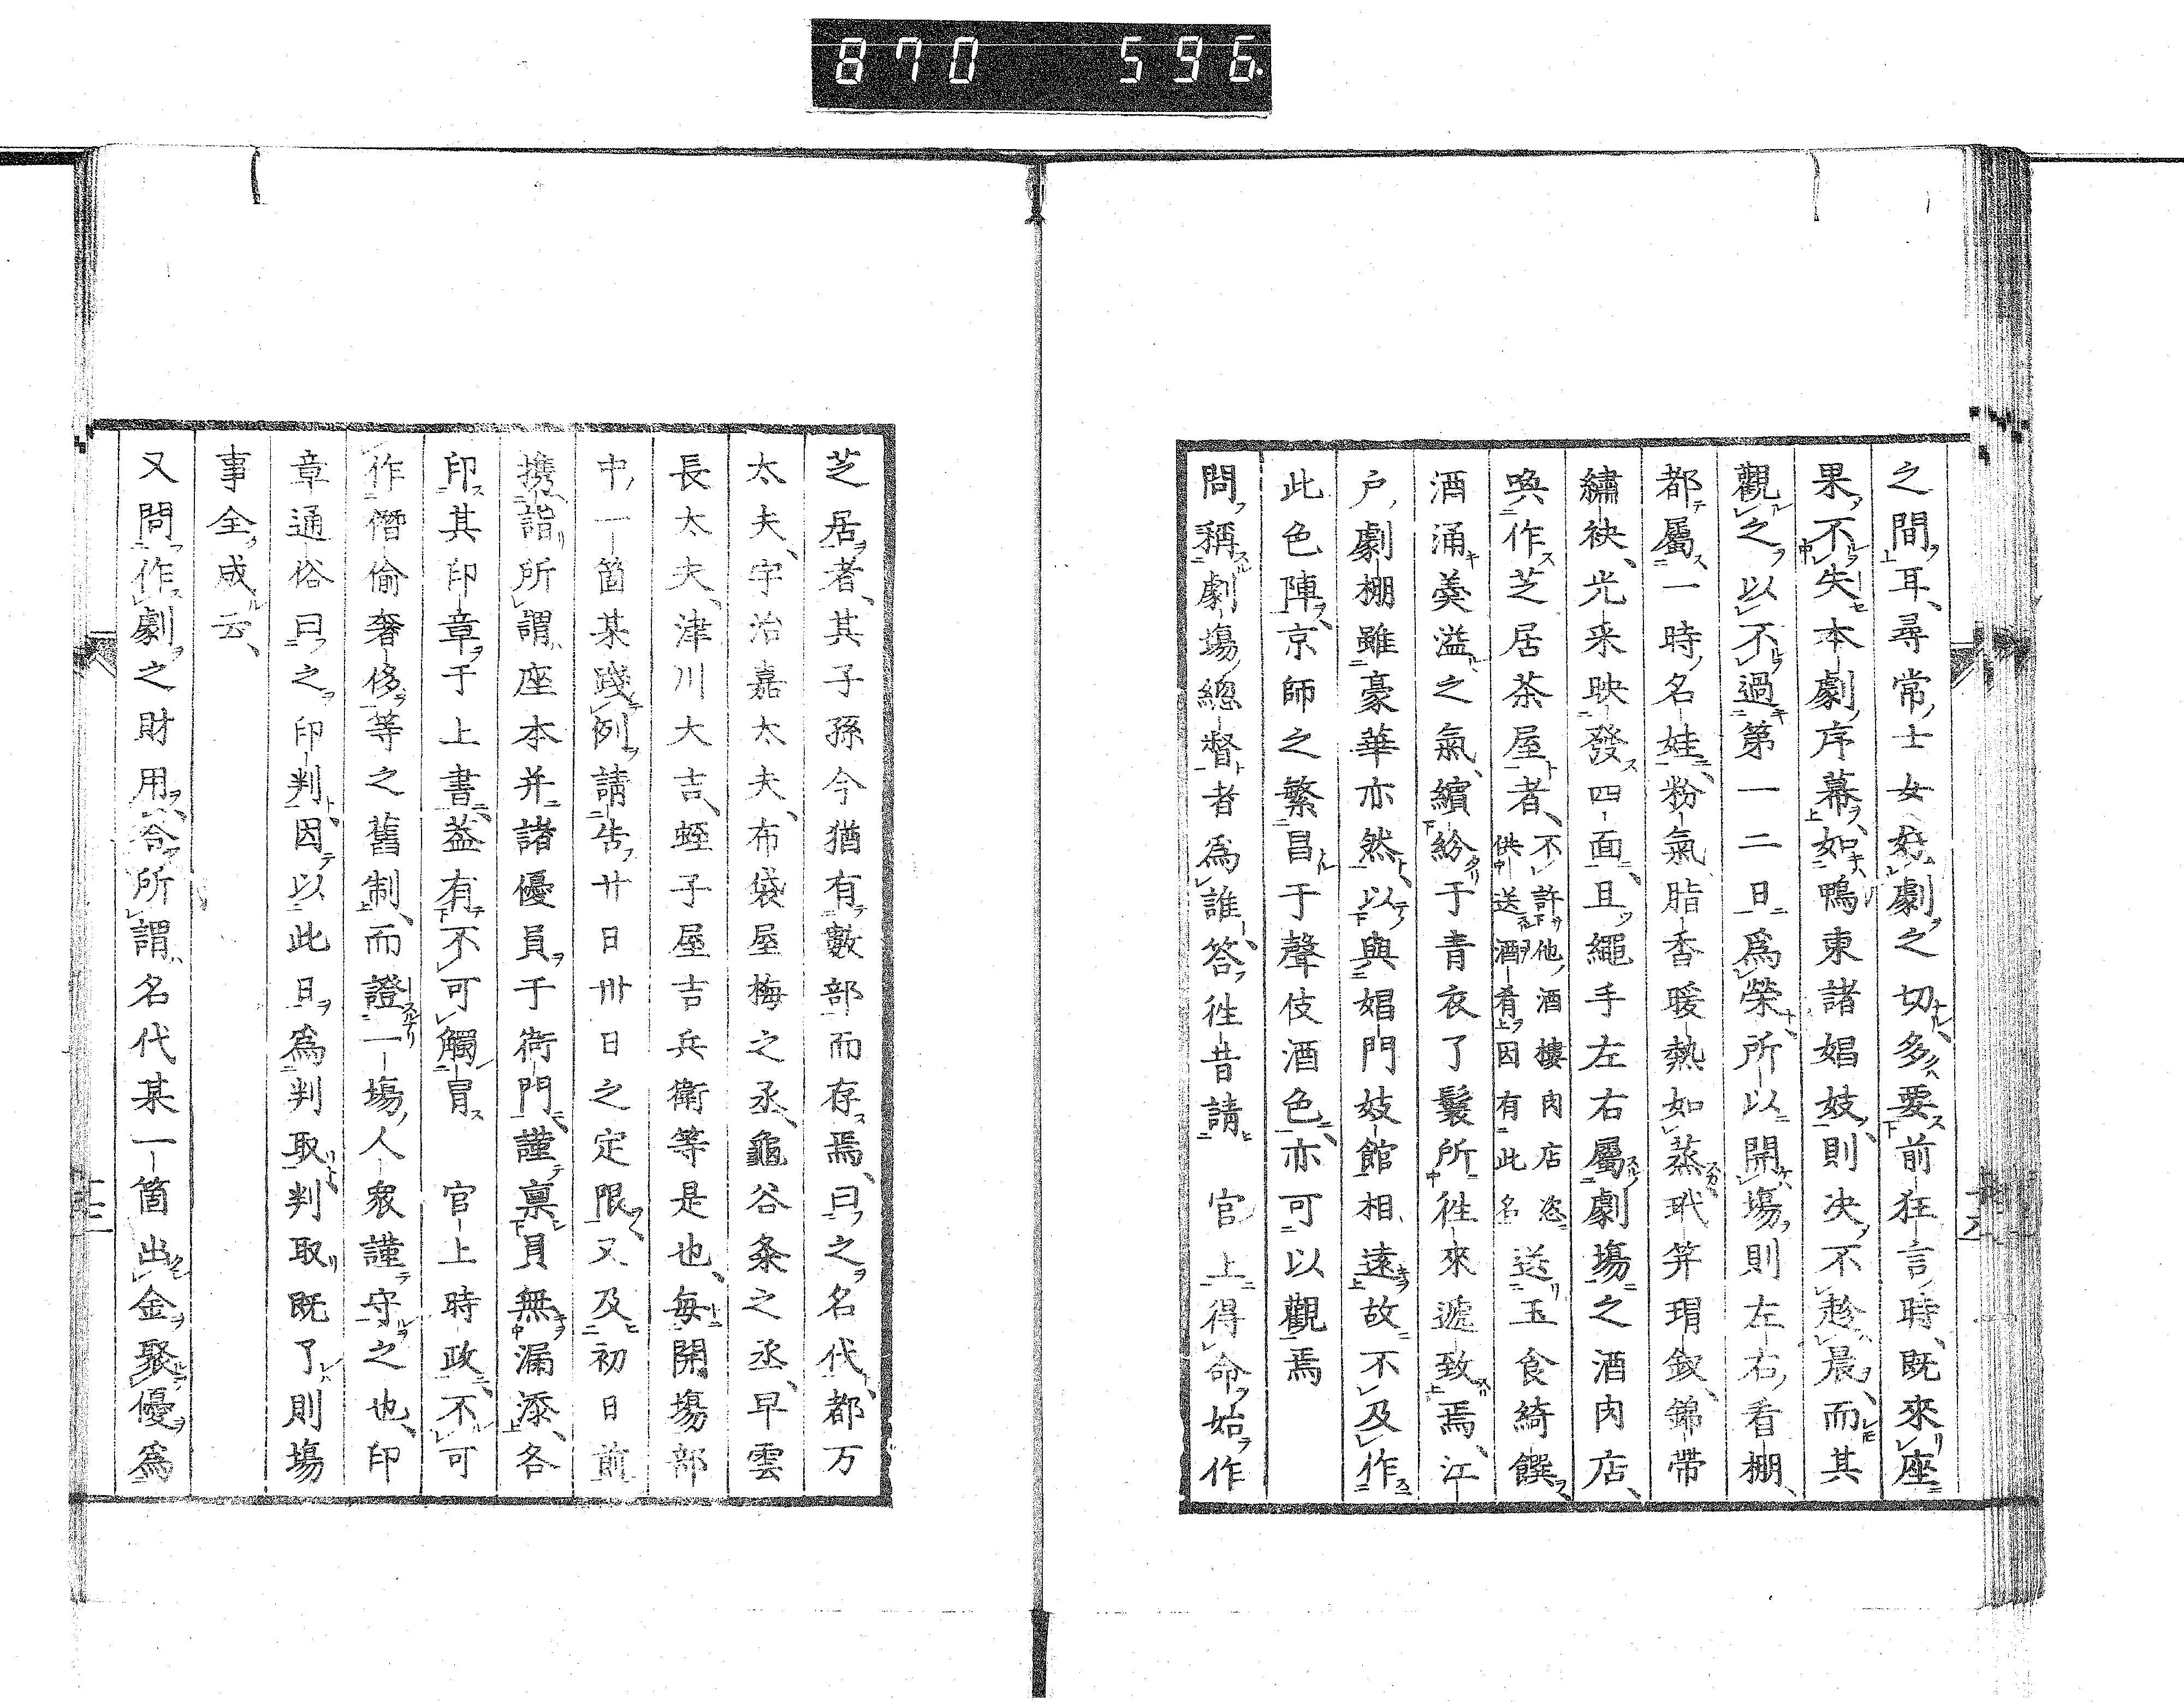 870 596.
之間耳、尋常士女好劇之切多要前狂言時、既來座
果不失本劇序幕、如鴨東諸娼妓、則决不趁晨、而其
觀之以不過第一二日爲榮、所以開場、則左右看棚、
都屬一時名娃、粉氣脂香暖熱如蒸、玳笄瑁釵、錦帶
繡袂、光采映發四面、且繩手左右屬劇場之酒肉店、
喚作芝居茶屋者、不許他酒樓肉店恣供送酒肴因有此名送玉食綺饌、
酒涌羹溢之氣、繽紛于青衣了鬟所徃來遞致焉、江
戶劇棚雖豪華亦然、以與娼門妓館相遠故不及作
此色陣、京師之繁昌于聲伎酒色、亦可以觀焉
問稱劇場總督者爲誰、答徃昔請 官上得命始作
芝居者、其子孫今猶有數部而存焉、曰之名代、都万
太夫、宇治嘉太夫、布袋屋梅之丞、龜谷粂之丞、早雲
長太夫、津川大吉、蛭子屋吉兵衛等是也、每開場部
中一箇某踐例請告廿日卅日之定限、又及初日前
携詣所謂座本并諸優員于衙門、謹禀員無漏添、各
印其印章于上書、葢有不可觸冒 官上時政、不可
作僭偷奢侈等之舊制、而證一場人衆謹守之也、印
章通俗曰之印判、因以此日爲判取、判取既了則場
事全成云、
又問作劇之財用、答所謂名代某一箇出金聚優爲